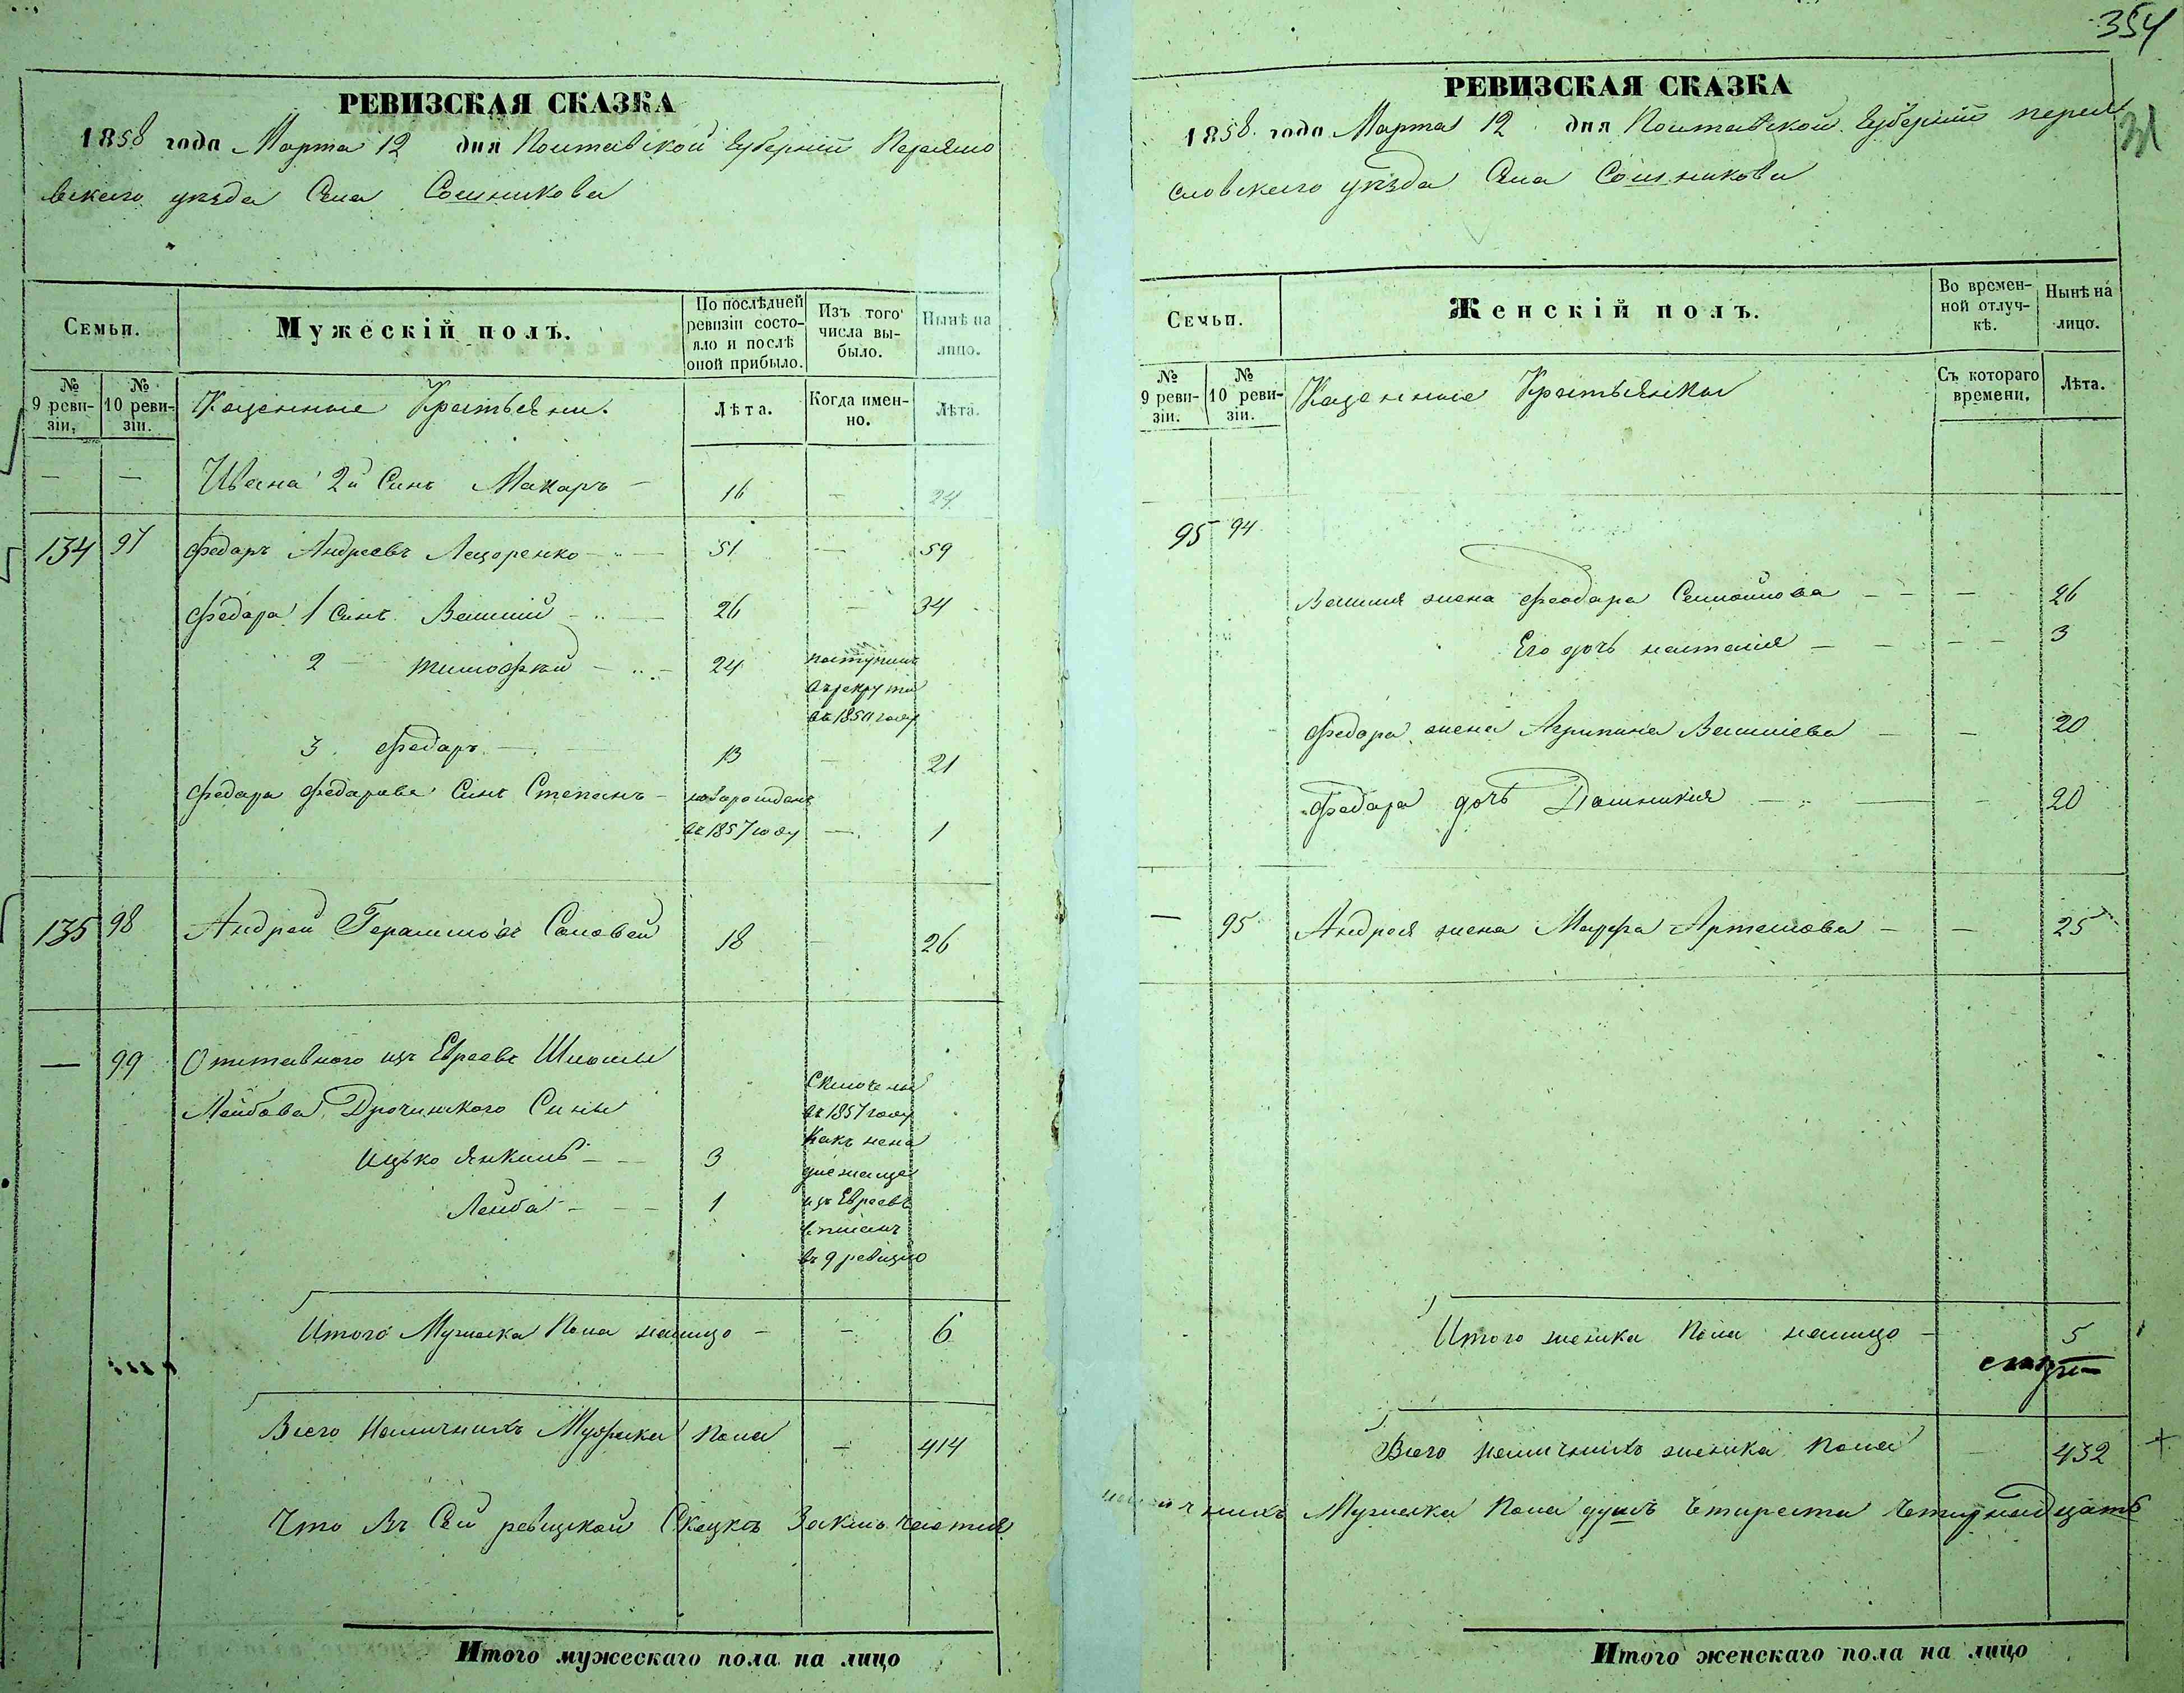 354
РЕВИЗСКАЯ СКАЗКА
1858 года Марта 12 дня Полтавской Губерніи Переяслo
вского уезда Села Сошникова
Семьи.
Мужескій полъ.
По послѣдней ревизіи состояло и послѣ оной прибыло.
Изъ того числа выбыло.
Нынѣ на лицо.
№ 9 ревизіи.
№ 10 ревизіи.
Казенные Крестьяни.
Лѣта.
Когда именно.
Лѣта.
— — Ивана 2й Синъ Макаръ — 16 — 24
134 97 Федаръ Андреевъ Лещоренко — 51 — 59
Федара 1 Синъ Василий — 26 — 34
2 — Тимофѣй — 24 поступилъ
въ рекруты
въ 1850 году
3 Федаръ — 13 — 21
Федара Федарова Синъ Степанъ — новарожденъ
въ 1857 году — 1
135 98 Андрей Герасимовъ Соловей 18 — 26
— 99 Отставного изъ Евреевъ Шмоши
Лейбова Дрочинского Сины
Ицько Янкиль — 3
Лейба — 1
Сключены
въ 1857 году
Какъ нена
длежаще
изъ Евреевъ
вписанъ
въ 9 ревизию
Итого Мужеска Пола налицо — — 6
Всего Наличнихъ Мужеска Пола — 414
Что Въ Сей ревизкой Скацкѣ Заключаетия
Итого мужескаго пола на лицо
РЕВИЗСКАЯ СКАЗКА
1858 года Марта 12 дня Полтавской Губерніи Переяс
словского уѣзда Села Сошникова
Семьи.
Женскій полъ.
Во временной отлучкѣ.
Нынѣ на лицо.
№ 9 ревизіи.
№ 10 ревизіи.
Казенные Крестьянки
Съ котораго времени.
Лѣта.
95 94
Василия жена Феодара Самойлова — — 26
Его дочь наталия — — 3
Федора жена Агрипина Василиева — — 20
Федара дочь Домникия — — 20
— 95 Андрея жена Марфа Артемова — — 25
Итого женска Пола налицо — 5
Всего Наличнихъ женска Пола — 432
наличнихъ Мужеска Пола душъ Четиреста Четирнадцать
Итого женскаго пола на лицо